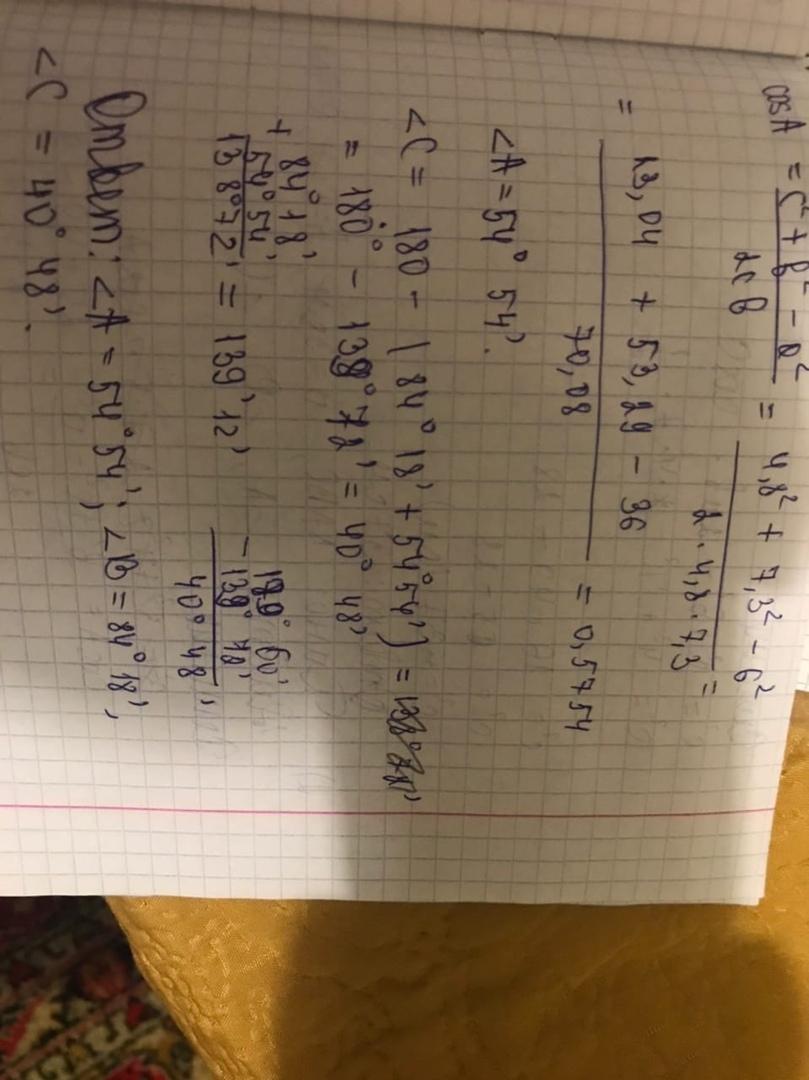 cosA = c² + b² - a² / 2cb = 4,8² + 7,3² - 6² / 2·4,8·7,3 =
= 23,04 + 53,29 - 36 / 70,08 = 0,5754
∠A = 54° 54'.
∠C = 180 - (84° 18' + 54°54') =
= 180° - 139° 12' = 40° 48'
+ 84° 18'
54° 54'
138°72' = 139' 12'
- 179° 60'
139° 12'
40° 48'
Ответ: ∠A = 54° 54'; ∠B = 84° 18',
∠C = 40° 48'.